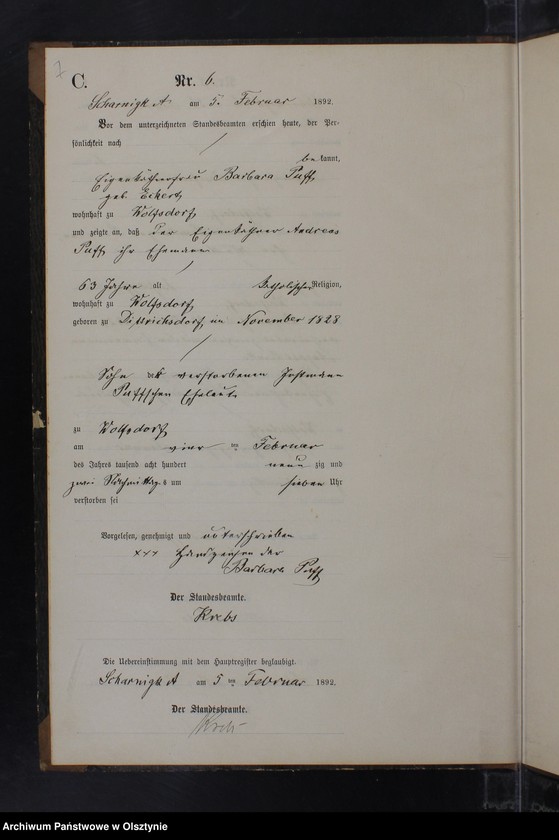 7
C.
Nr. 6.
Scharnigk A am 5. Februar 1892.
Vor dem unterzeichneten Standesbeamten erschien heute, der Per-
sönlichkeit nach
be kannt,
Eigenkäthnerfrau Barbara Puff
geb. Eckert
wohnhaft zu Wolfsdorf
und zeigte an, daß der Eigenkäthner Andreas
Puff ihr Ehemann
63 Jahre alt katholischer Religion,
wohnhaft zu Wolfsdorf
geboren zu Dittrichsdorf im November 1828
Sohn der verstorbenen Instmann
Puffschen Eheleute
zu Wolfsdorf
am vier ten Februar
des Jahres tausend acht hundert neun zig und
zwei Nachmittags um sieben Uhr
verstorben sei
Vorgelesen, genehmigt und unterschrieben
xxx Handzeichen der
Barbara Puff
Der Standesbeamte.
Krebs
Die Uebereinstimmung mit dem Hauptregister beglaubigt.
Scharnigk A am 5 ten Februar 1892.
Der Standesbeamte.
Krebs
Archiwum Państwowe w Olsztynie